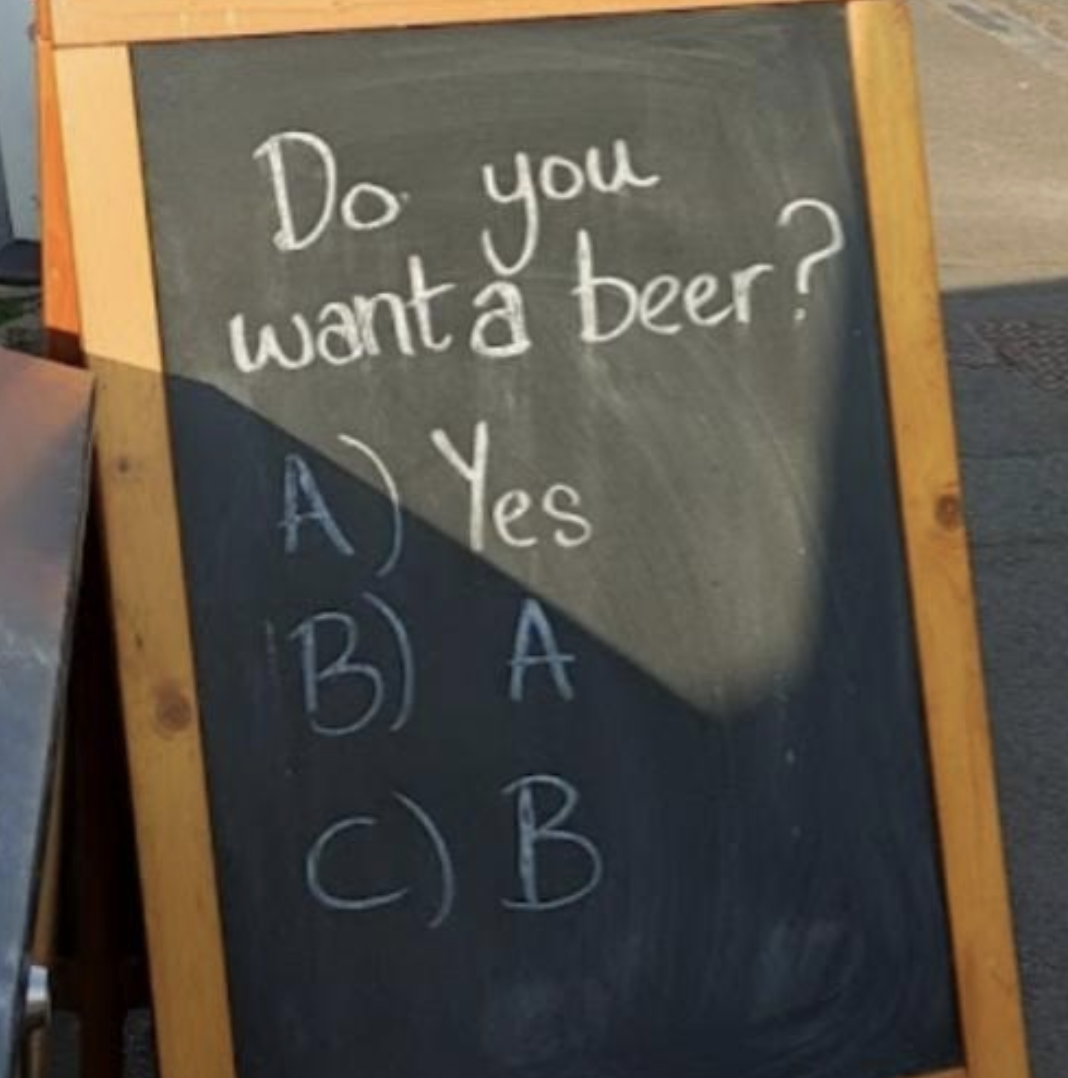 Do you
want a beer?
A) Yes
B) A
C) B